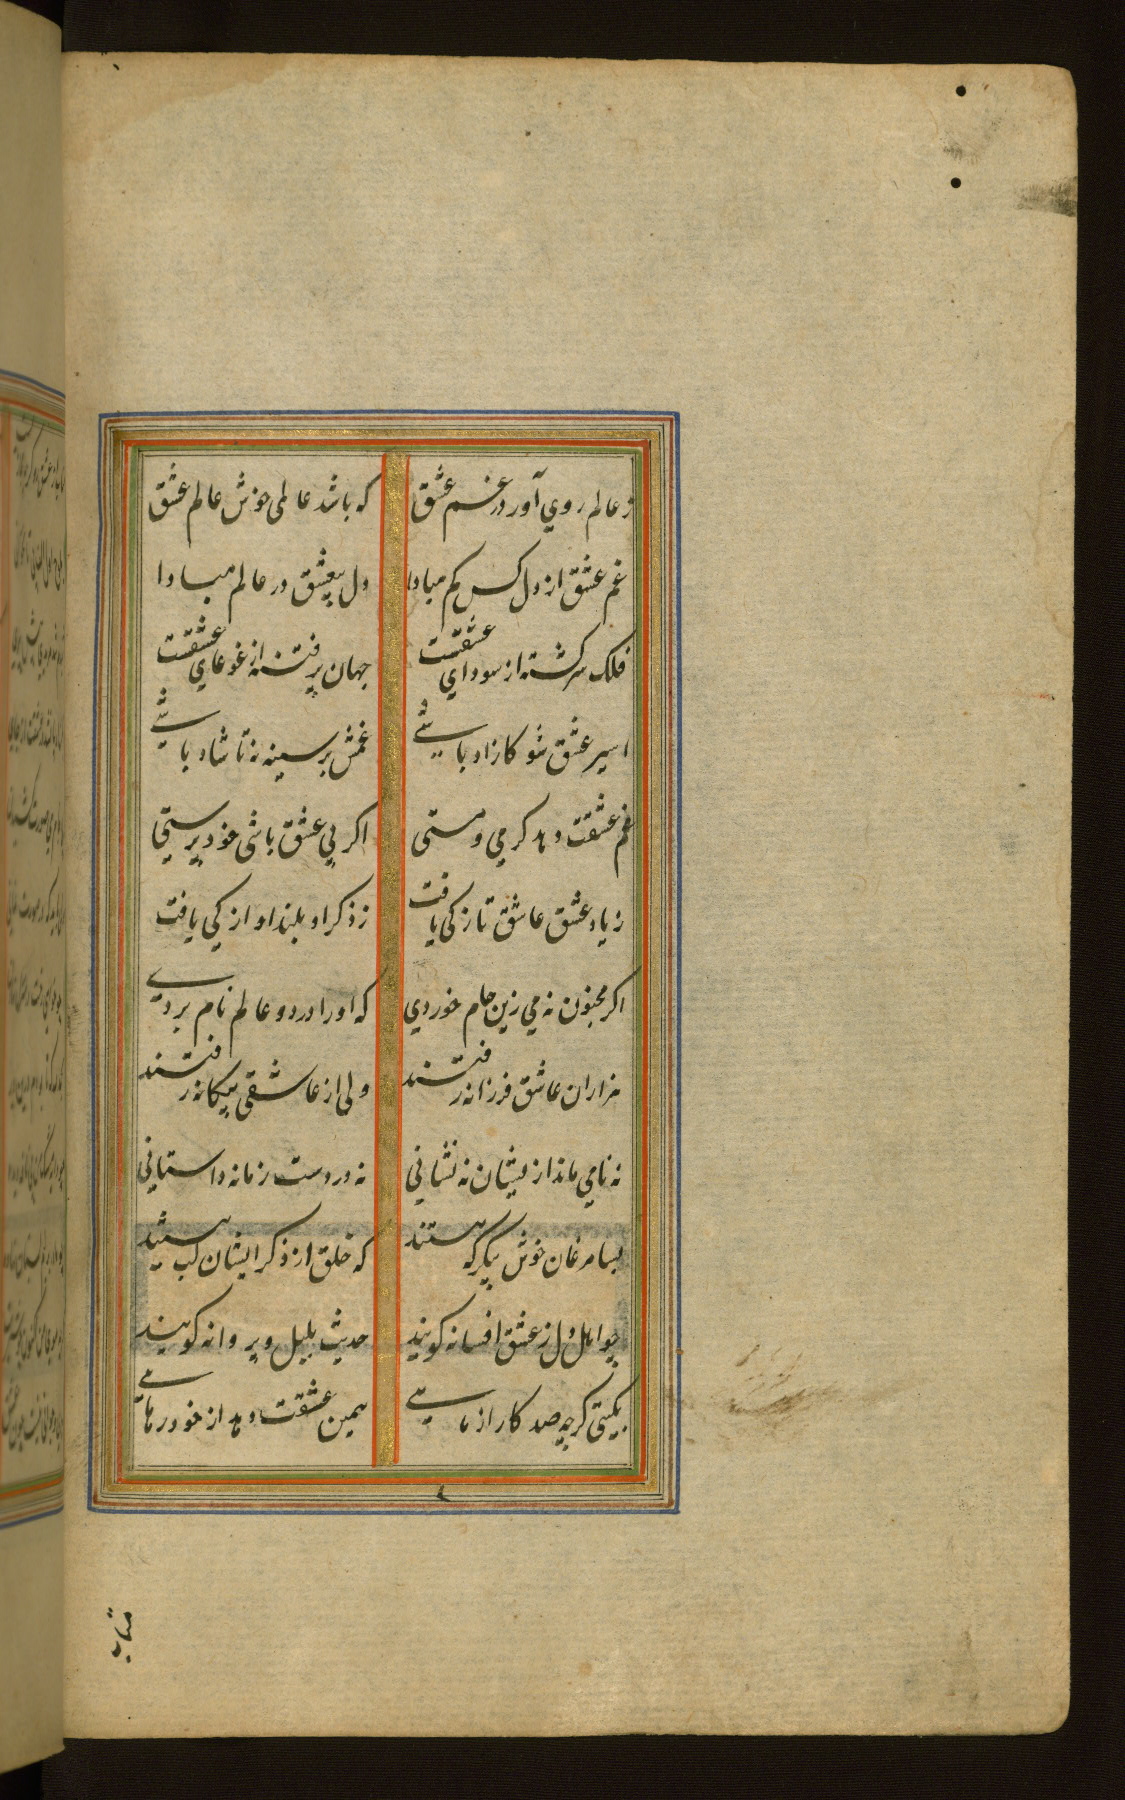 ز عالم روي آور در غم عشق که باشد عالمی خوش عالم عشق
غم عشق از دل کس کم مبادا دل بیعشق در عالم مبادا
فلک سرکشته از سوداي عشقست جهان پر فتنه از غوغاي عشقست
اسیر عشق شو کازاد باشے غمش بر سینه نه تا شاد باشے
غم عشقت دهد کرمی و مستی اکر بی عشق باشی خود پرستی
زیاد عشق عاشق تازکی یافت ز ذکر او بلند اوازکی یافت
اکر مجنون نه می زین جام خوردي که او را در دو عالم نام بردے
هزاران عاشق فرزانه رفتند ولی از عاشقی بیکانه رفتند
نه نامی ماند از یشان نه نشانی نه در دست زمانه داستانی
بسا مرغان خوش پیکر که هستند که خلق از ذکر ایشان لب ببستند
چو اهل دل ز عشق افسانه کویند حدیث بلبل و پروانه کویند
بکیتی کرچه صد کار ازماے همین عشقت دهد از خود رهاے
متاب